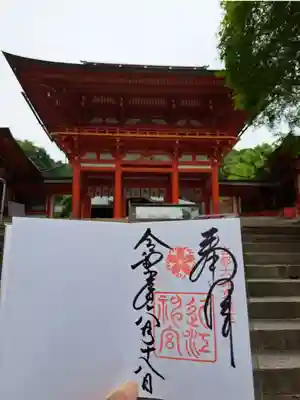 奉拝
近江
神宮
令和元年八月十八日